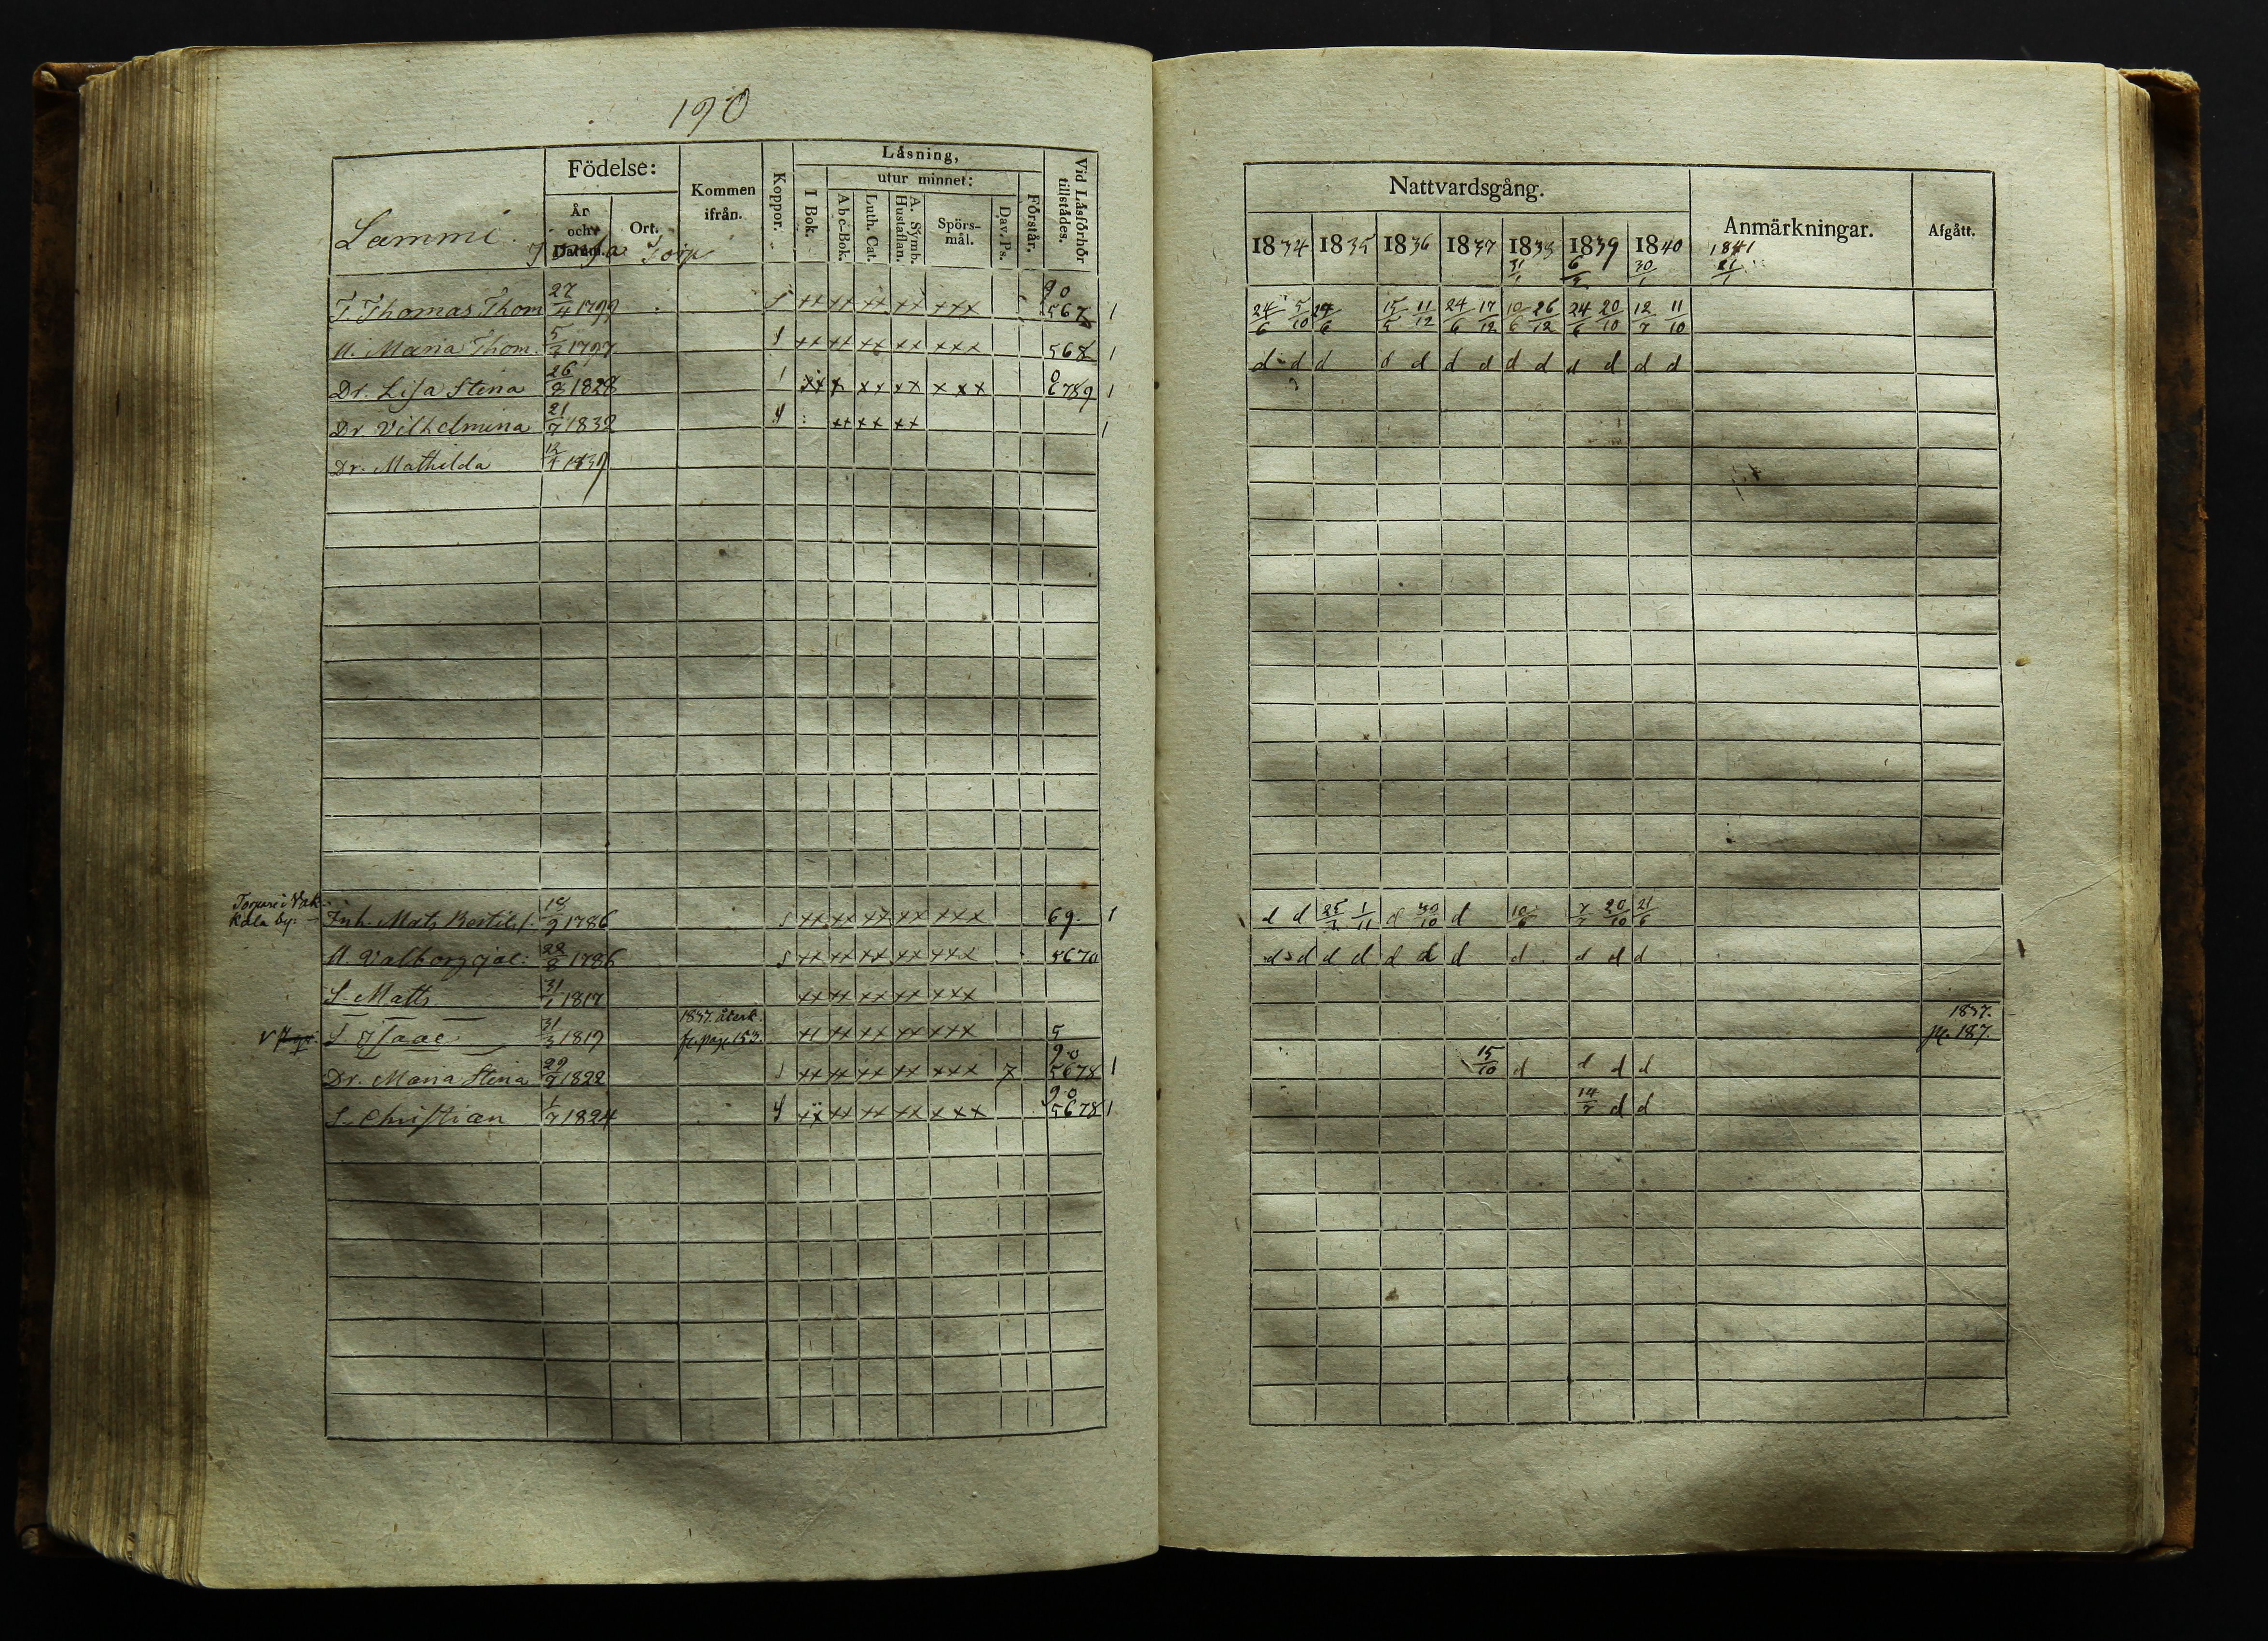 190
Lammi.
Torp
Födelse:
År och Datum.
Ort.
Kommen ifrån.
Koppor.
Läsning,
I Bok.
utur minnet:
Abc-Bok.
Luth. Cat.
A. Symb. Hustaflan.
Spörs-mål.
Dav. Ps.
Förstår.
Vid Läsförhör tillstådes.
T. Thomas Thom 27/4 1799 S xx xx xx xx xxx 90 567 1
H. Maria Thom. 1797 S xx xx xx xx xxx 568 1
Dr. Lisa Stena 26/8 1828 xx x xx xx xxx 0 6789 1
Dr Vilhelmina 21/7 1832 xx xx xx 1
Dr. Mathilda 12/4 1839
Torpare i Vak-
kala by.
Inh. Mats Bertils. 1786 S xx xx xx xx xxx 69. 1
H. Valborg Jac: 22/8 1786 S xx xx xx xx xxx 5670
S. Matts 31/1 1817 xx xx xx xx xxx
S. Isaac 31/3 1819 1837. återk. fr. pag. 153. xx xx xx xx xxx 5
Dr. Maria Stena 1822 xx xx xx xx xxx 7 90 5678 1
S. Christian 1/7 1824 xx xx xx xx xxx 90 5678 1
Nattvardsgång.
Anmärkningar.
Afgått.
1834 1835 1836 1837 1838 1839 1840 1841
31/1 30/1 21/1
24/6 5/10 24/6 15/5 11/12 24/6 17/12 10/6 26/12 24/6 20/10 12/7 11/10
d d d d d d d d d d d d d
d d 25/7 1/11 d 30/10 d 10/6 7/7 20/10 21/6
d d d d d d d d d d d
1837.
pg. 187.
15/10 d d d d
14/7 d d